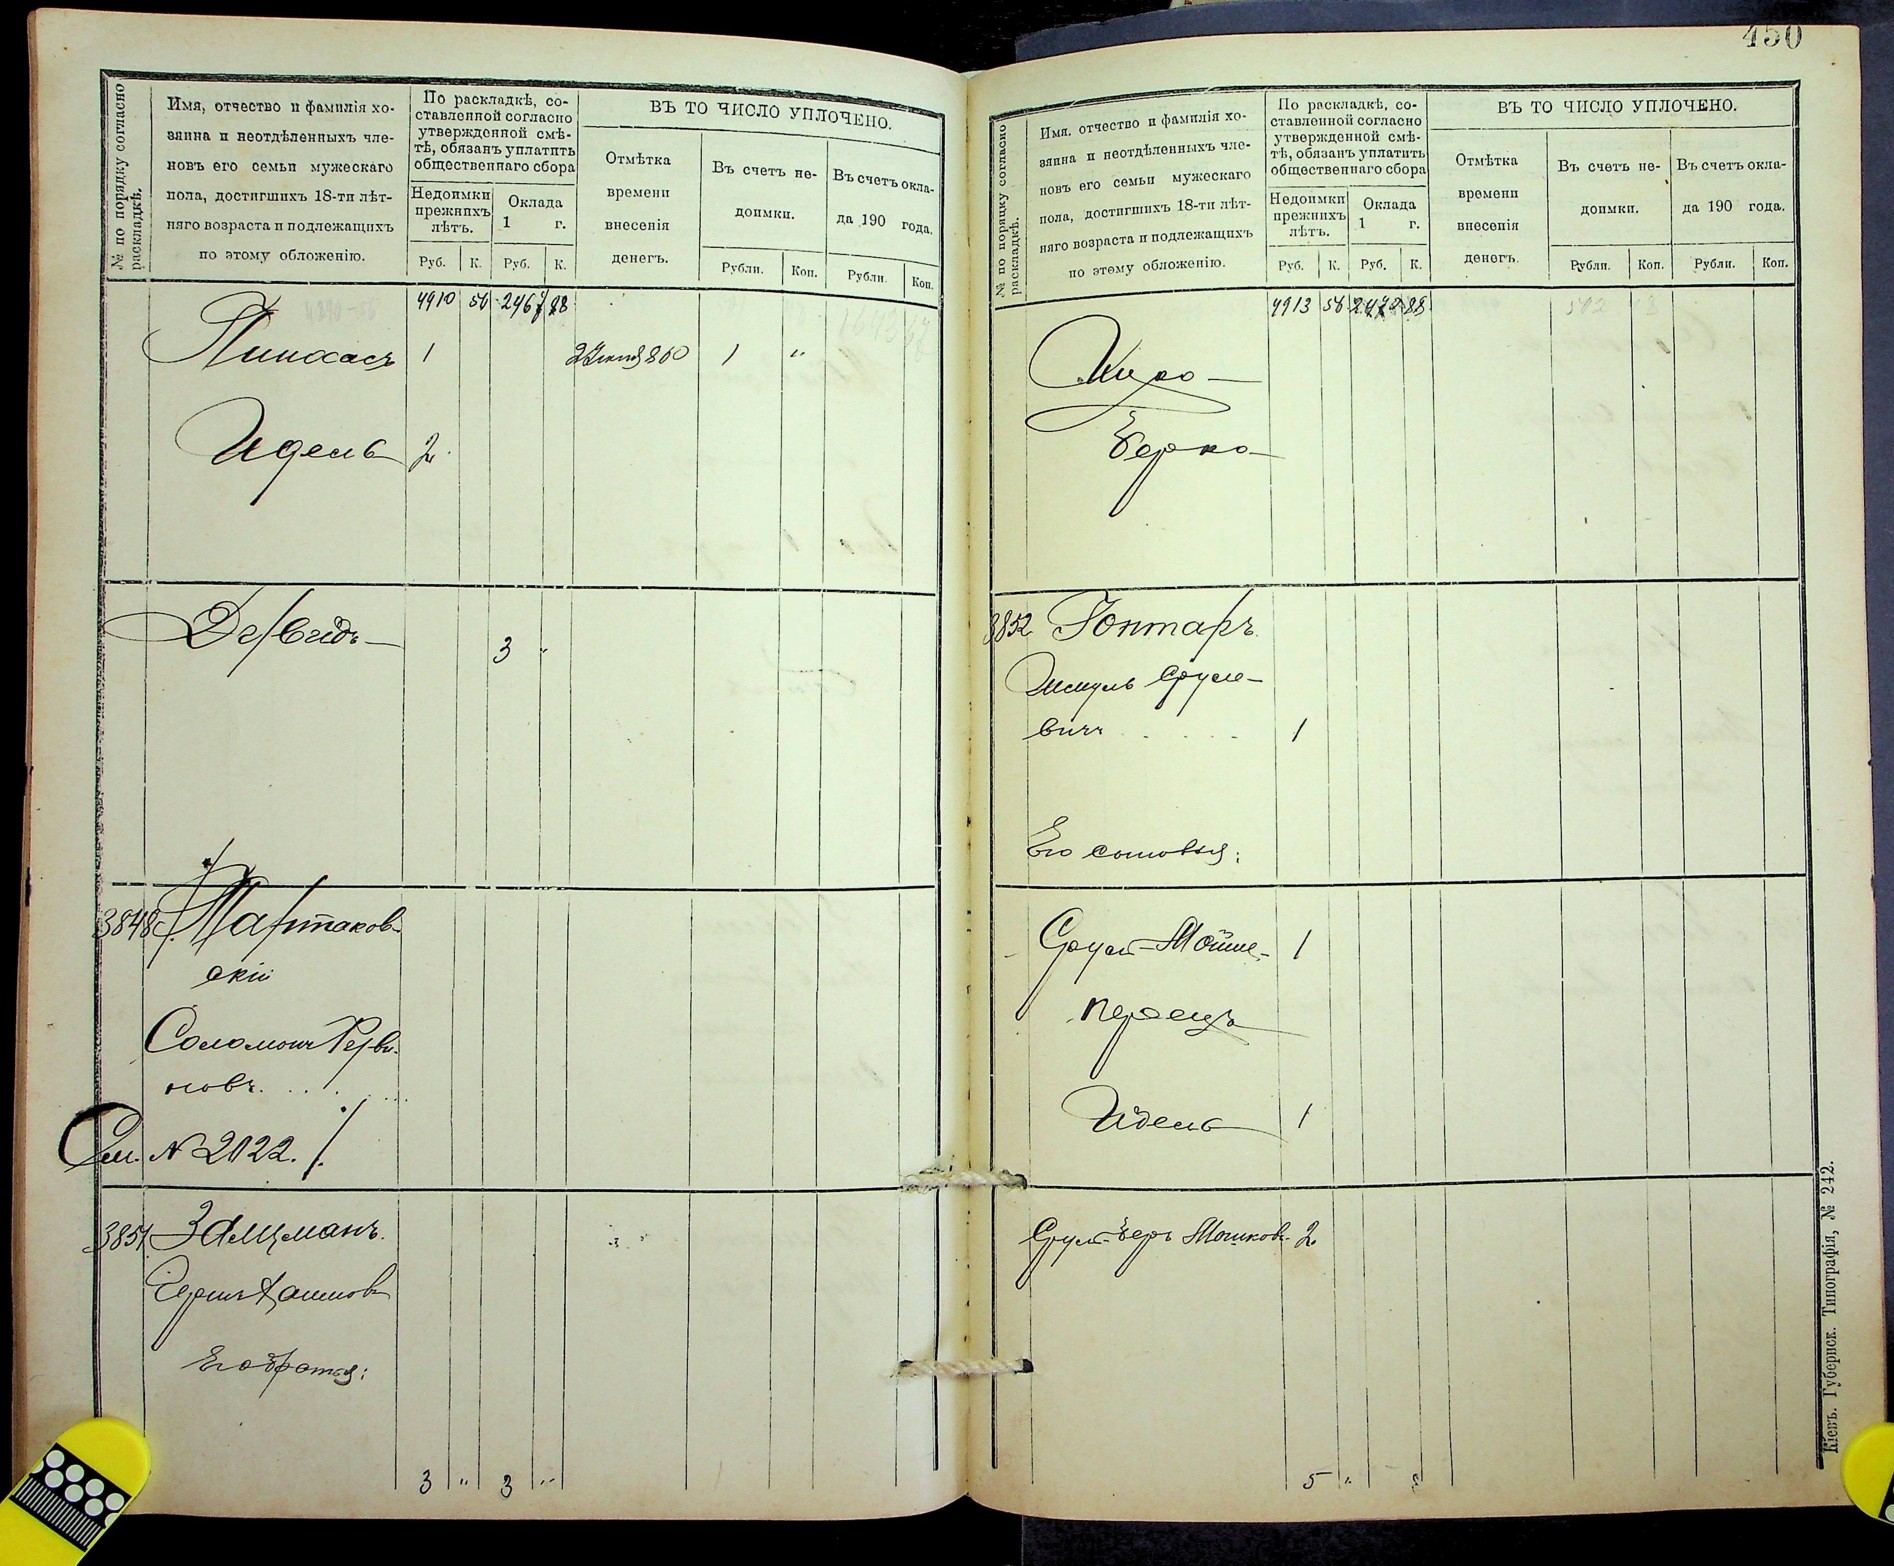 450
№ по порядку согласно раскладкѣ.
Имя, отчество и фамилія хо-
зяина и неотдѣленныхъ чле-
новъ его семьи мужескаго
пола, достигшихъ 18-ти лѣт-
няго возраста и подлежащихъ
по этому обложенію.
По раскладкѣ, со-
ставленной согласно
утвержденной смѣ-
тѣ, обязанъ уплатить
общественнаго сбора
Недоимки
прежнихъ
лѣтъ.
Оклада
1 г.
Руб. К. Руб. К.
ВЪ ТО ЧИСЛО УПЛОЧЕНО.
Отмѣтка
времени
внесенія
денегъ.
Въ счетъ не-
доимки.
Рубли. Коп.
Въ счетъ окла-
да 190 года.
Рубли. Коп.
4910 56 2467 88
Пинхасъ 1 1 "
Идель 2
Давидъ 3 "
3848 Тартаков-
скій
Соломонъ
новъ. . . . . .
См. № 2022.
3851 Залцманъ.
Его братья:
3 " 3 "
№ по порядку согласно раскладкѣ.
Имя, отчество и фамилія хо-
зяина и неотдѣленныхъ чле-
новъ его семьи мужескаго
пола, достигшихъ 18-ти лѣт-
няго возраста и подлежащихъ
по этому обложенію.
По раскладкѣ, со-
ставленной согласно
утвержденной смѣ-
тѣ, обязанъ уплатить
общественнаго сбора
Недоимки
прежнихъ
лѣтъ.
Оклада
1 г.
Руб. К. Руб. К.
ВЪ ТО ЧИСЛО УПЛОЧЕНО.
Отмѣтка
времени
внесенія
денегъ.
Въ счетъ не-
доимки.
Рубли. Коп.
Въ счетъ окла-
да 190 года.
Рубли. Коп.
4913 56 88
Берко
3852 Гонтаръ
Шмуль Сруле-
вичъ . . . . . 1
Его сыновья:
Сруль-Мойше- 1
Перецъ
Идель 1
Сруль-Беръ Мошков. 2
5 "
Кіевъ. Губернск. Типографія, № 242.